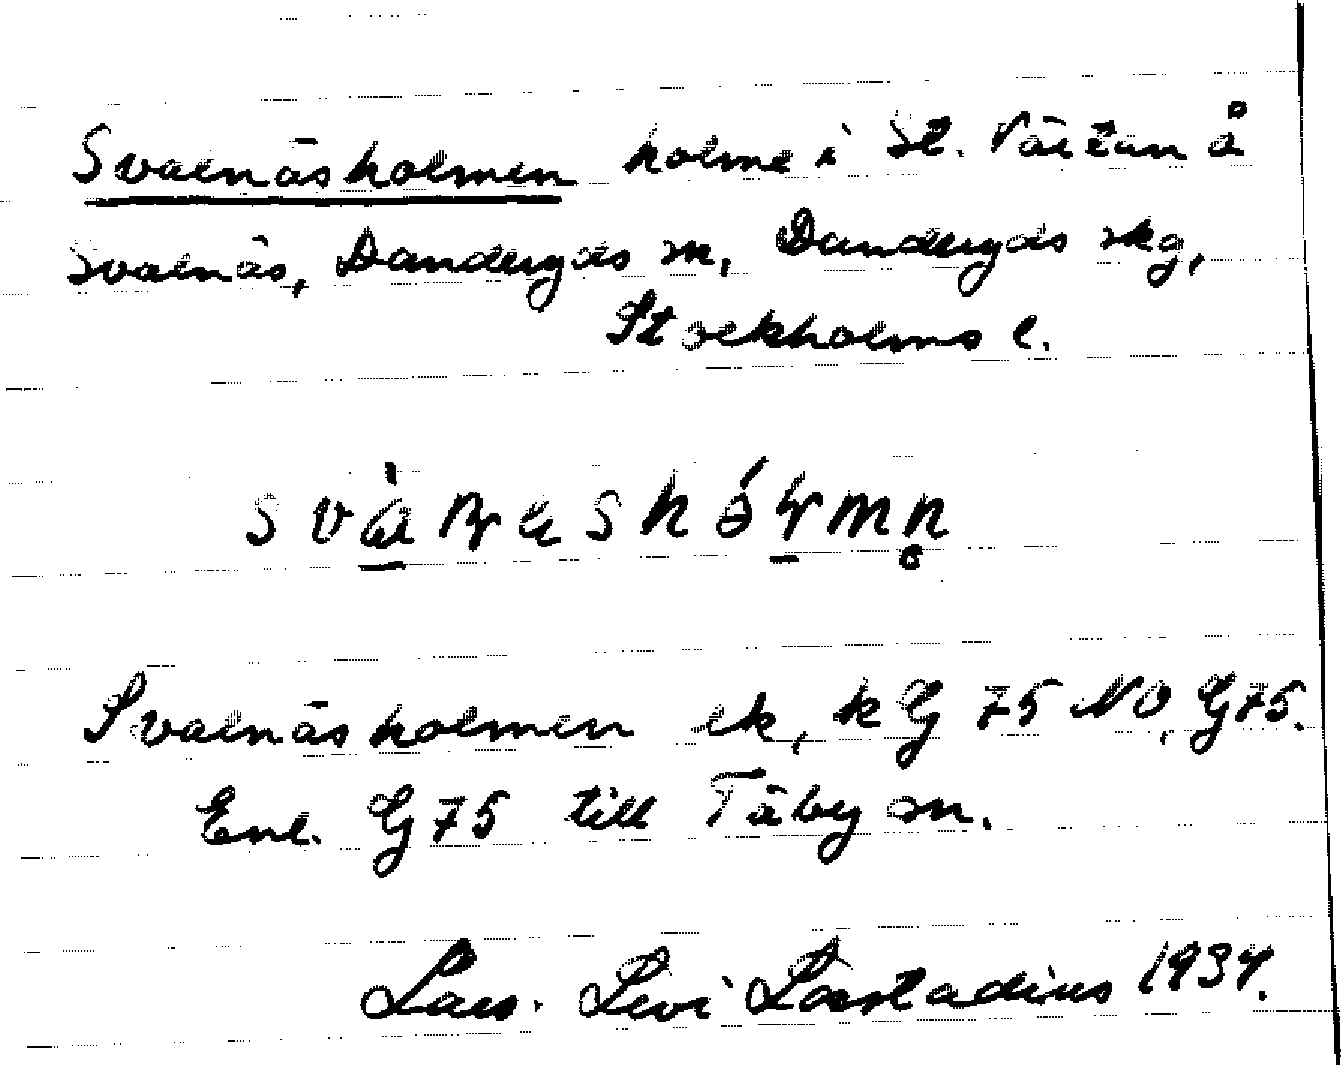 Svalnäsholmen holme i St. Värtan å
Svalnäs, Danderyds sn, Danderyds skg,
Stockholms l.
Svalnäsholmen ek, kG 75 NO, G75.
Enl. G75 till Täby sn.
Lars Levi Læstadius 1934.